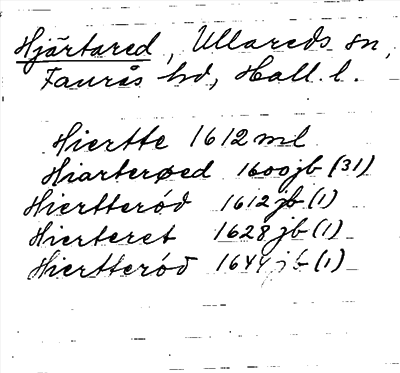 Hjärtared, Ullareds sn,
Faurås hd, Hall. l.
Hiertte 1612 ml
Hiarterøed 1600 jb (31)
Hiertteröd 1612 jb (1)
Hierteret 1628 jb (1)
Hiertteröd 1644 jb (1)